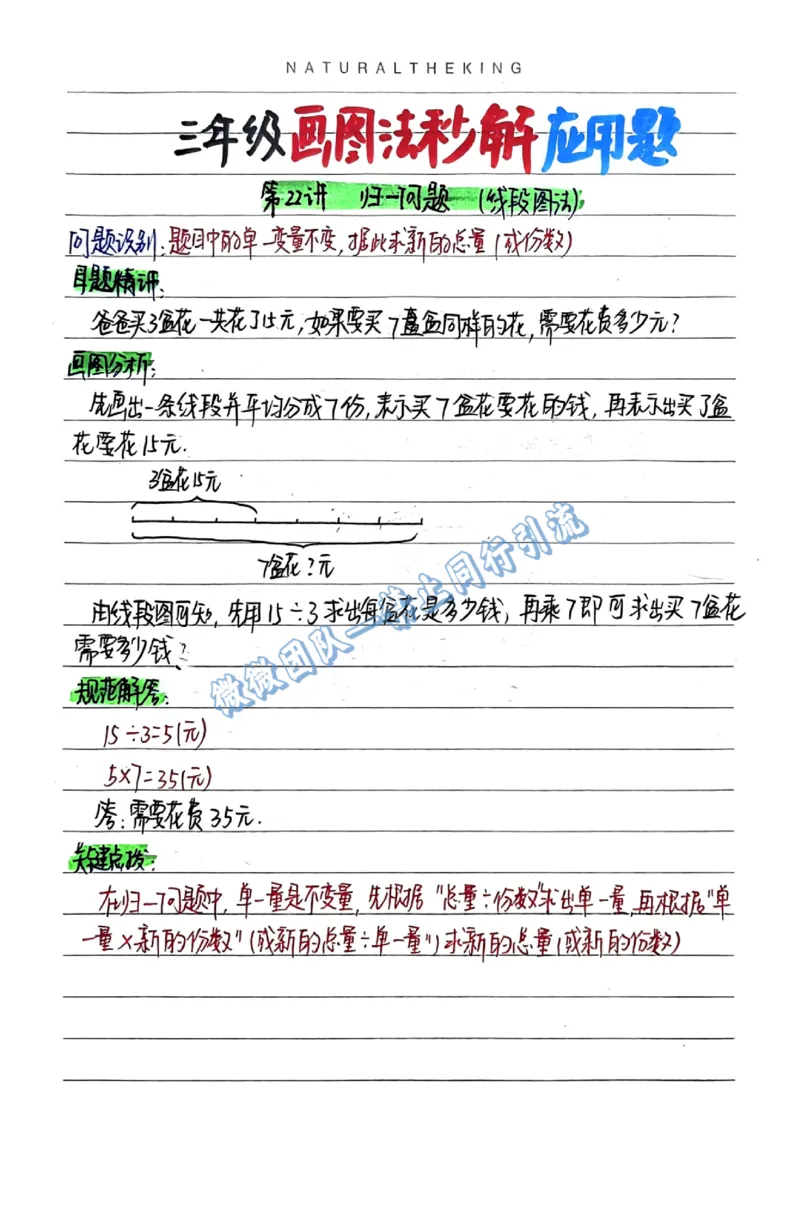 NATURALTHEKING
三年级画图法秒解应用题
第22讲 归一问题 (线段图法)
问题识别:题目中的单一变量不变,据此求新的总量(或份数)
题目精讲:
爸爸买3盆花一共花了15元,如果要买7盆同样的花,需要花费多少元?
画图分析:
先画出一条线段并平均分成7份,表示买7盆花要花的钱,再表示出买3盆
花要花15元.
3盆花15元
7盆花?元
由线段图可知,先用15÷3求出每盆花是多少钱,再乘7即可求出买7盆花
需要多少钱?
微微团队一 禁止同行引流
规范解答:
15÷3=5(元)
5×7=35(元)
答:需要花费35元.
关键点拨:
在归一问题中,单一量是不变量,先根据"总量÷份数"求出单一量,再根据"单
一量×新的份数"(或新的总量÷单一量")求新的总量(或新的份数)